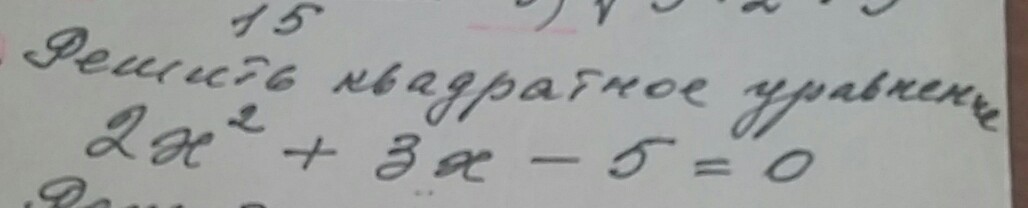 15
Решить квадратное уравнение
2x² + 3x - 5 = 0